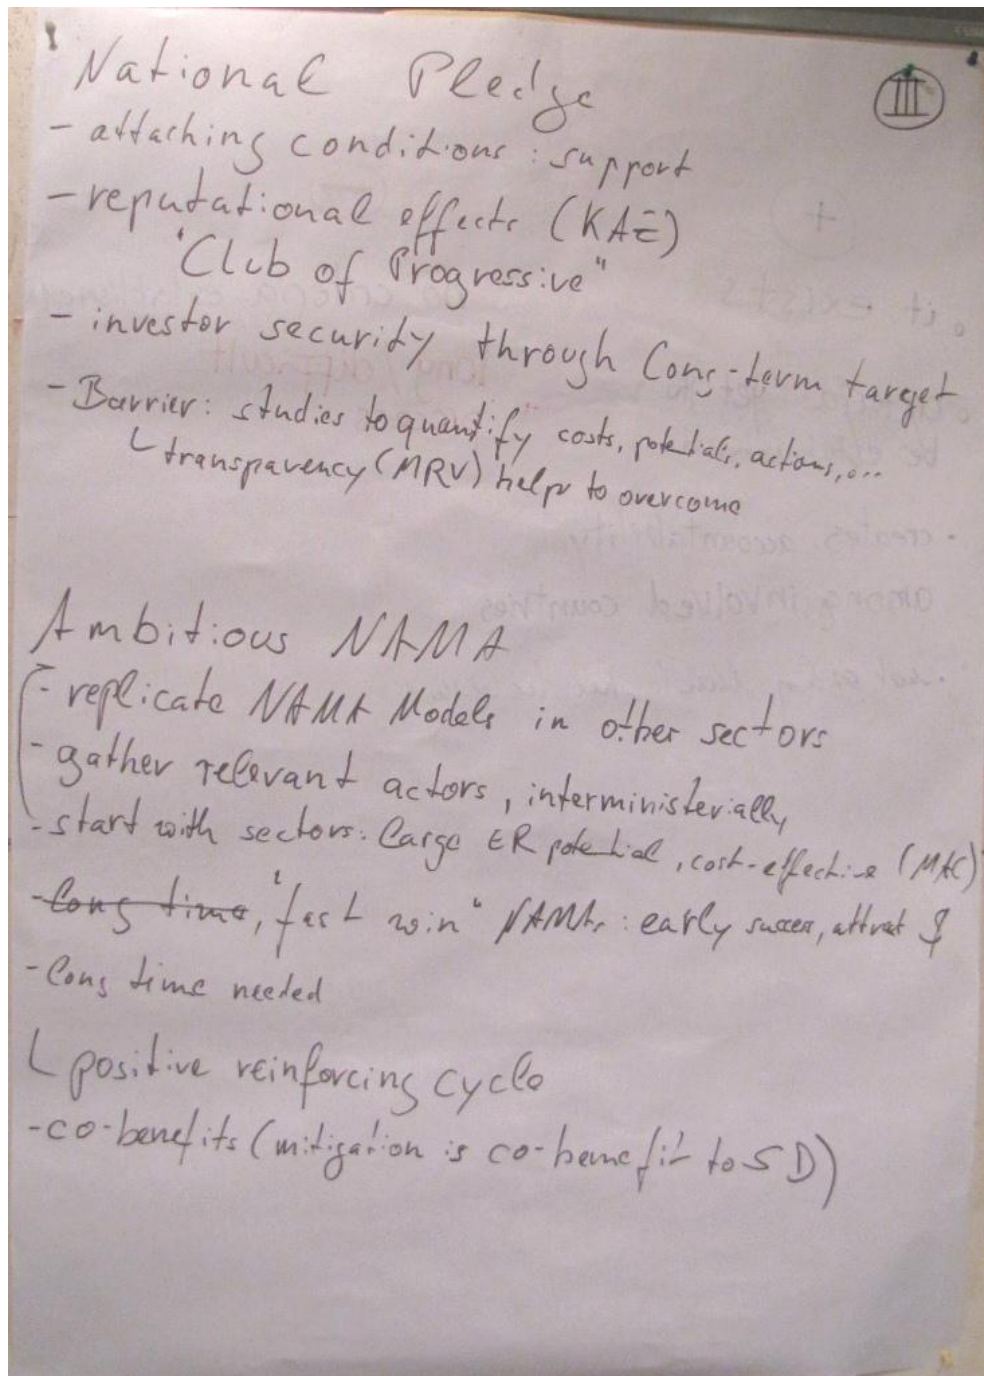 National Pledge
III
- attaching conditions : support
- reputational effects (KAE)
"Club of Progressive"
- investor security through long-term target
- Barrier: studies to quantify costs, potentials, actions,...
transparency (MRV) helps to overcome
Ambitious NAMA
- replicate NAMA Models in other sectors
- gather relevant actors, interministerially
- start with sectors: large ER potential, cost-effective (MAC)
- long time, "fast win" NAMAs : early success, attract $
- long time needed
positive reinforcing cycle
- co-benefits (mitigation is co-benefit to SD)